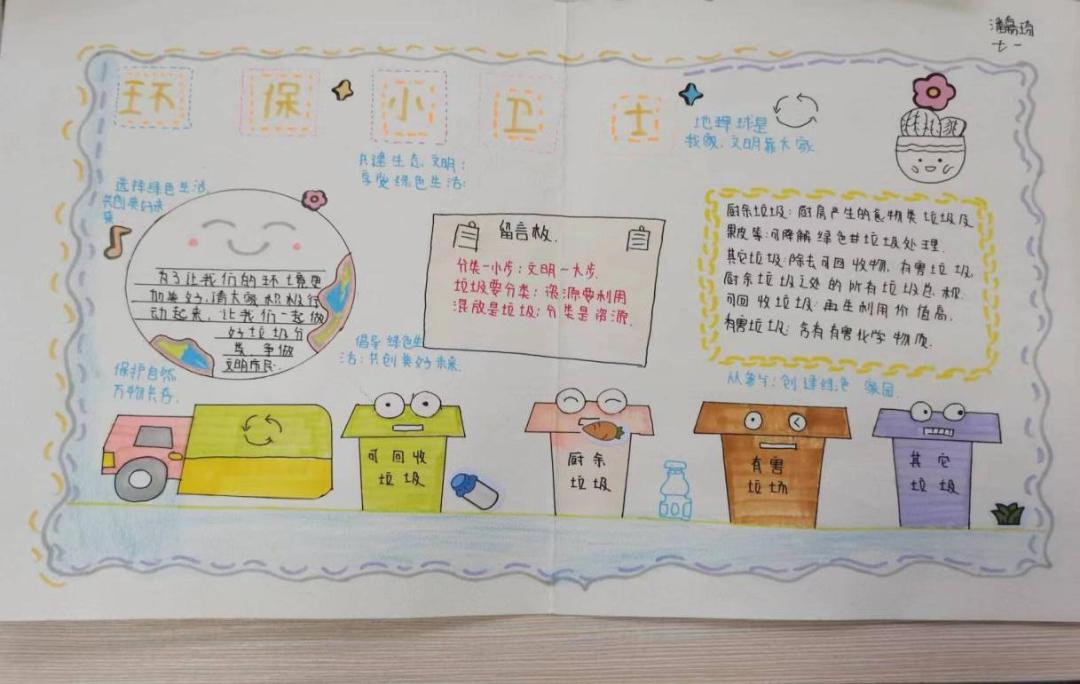 七一
环保小卫士
地球是
我家,文明靠大家
共建生态文明;
享受绿色生活:
选择绿色生活,
共创美好未
来.
为了让我们的环境更
加美好,请大家积极行
动起来,让我们一起做
好垃圾分
类,争做
文明市民.
留言板.
分类一小步;文明一大步.
垃圾要分类;资源要利用
混放是垃圾;分类是资源.
厨余垃圾:厨房产生的食物类垃圾及
果皮等:可降解绿色垃圾处理.
其它垃圾:除去可回收物,有害垃圾,
厨余垃圾之外的所有垃圾总称.
可回收垃圾:再生利用价值高.
有害垃圾:含有有害化学物质.
倡导绿色生
活:共创美好未来.
保护自然
万物共存.
创建绿色家园.
可回收
垃圾
厨余
垃圾
有害
垃圾
其它
垃圾